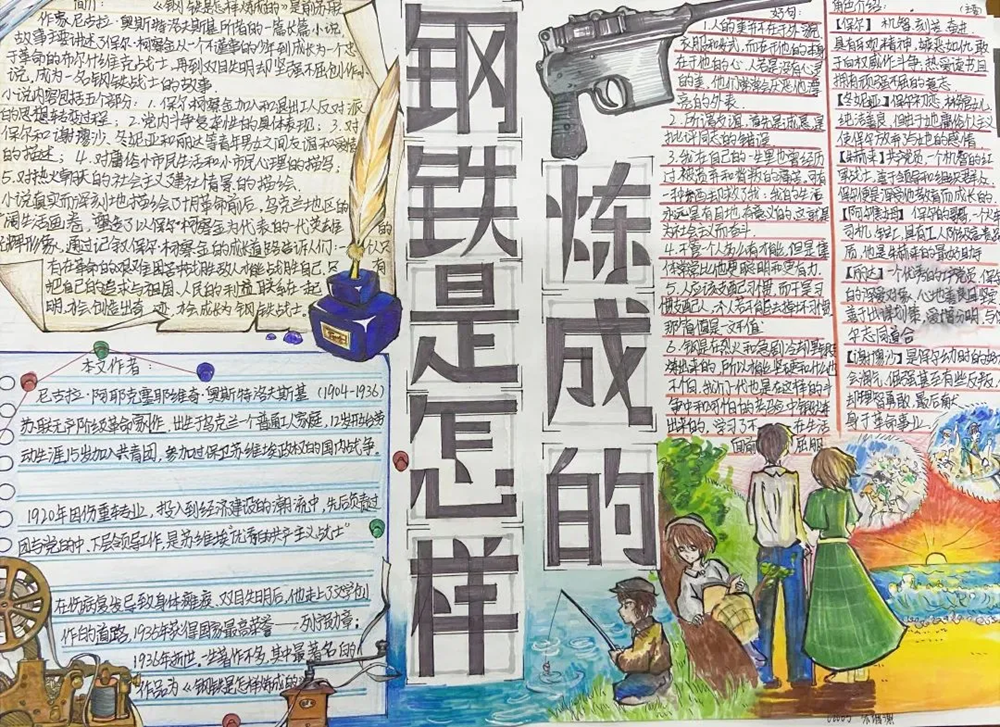 简介: 《钢铁是怎样炼成的》是前苏联
作家尼古拉·奥斯特洛夫斯基所著的一篇长篇小说,
故事主要讲述了保尔·柯察金从一个不懂事的少年到成为一个忠
于革命的布尔什维克战士,再到双目失明却坚强不屈创作小
说,成为一名钢铁战士的故事.
小说内容包括五个部分: 1.保尔·柯察金加入和退出工人反对派
的思想转变过程; 2.党内斗争复杂性的具体表现; 3.对
保尔和谢廖沙、冬妮亚和丽达等青年男女之间友谊和
的描述; 4.对庸俗小市民生活和小市民心理的描写;
5.对热火朝天的社会主义建设情景的描绘.
小说真实而深刻地描绘了十月革命前后,乌克兰地区的
阔生活画卷,塑造了以保尔·柯察金为代表的一代英雄
通过记叙保尔·柯察金的成长道路告诉人们:一个人只
有在革命的艰难困苦中战胜敌人也战胜自己,
把自己的追求与祖国、人民的利益联系在一起
明,才会创造出奇迹,才会成长为钢铁战士.
本文作者:
尼古拉·阿耶克塞耶维奇·奥斯特洛夫斯基 (1904-1936)
苏联无产阶级革命家作,出生于乌克兰一个普通工人家庭,12岁开始劳
动生涯,15岁加入共青团,参加过保卫苏维埃政权的国内战争.
1920年因伤重转业,投入到经济建设的潮流中,先后负责过
团与党的中、下层领导工作,是苏维埃"优秀的共产主义战士"
在伤病常发导致身体瘫痪、双目失明后,他走上了文学创
作的道路,1935年获得国家最高荣誉——列宁勋章;
1936年逝世.一生著作不多,其中最著名的
作品为《钢铁是怎样炼成的》
钢铁是怎样
炼成的
好句:
1.人的美并不在于外貌、
衣服和发式,而在于他的本身,
在于他的心,人若是没有心灵
的美,他们常常会厌恶他漂
亮的外表.
2.所谓友谊,首先是诚恳,是
批评同志的错误
3.我在自己的一生里也曾经历
过
永远是有目的、有意义的,这就是
为社会主义而奋斗.
4.不管一个人多么有才能,但是集
体常常比他更聪明和更有力.
5.人应该支配习惯,而不是习
惯支配人,一个人若不能去掉坏习惯,
那简直是一文不值
6.钢是在烈火和急剧冷却里锻
炼出来的,所以才能坚硬和什么也
不怕.我们一代也是在这样的斗
争中和可怕的考验中锻炼
出来的,学习了不在生活
面前屈服
角色介绍: (主要)
【保尔】 机警、刻苦、奋进.
具有乐观精神,嫉恶如仇,敢
于向权威作斗争,热爱读书且
拥有顽强不屈的意志
【冬妮亚】保尔初恋,林务官女儿,
纯洁善良,但由于她庸俗个人主义
使保尔放弃与她的感情
【朱赫来】共产党员,一个机智的红
军战士,善于领导和组织群众.
保尔便是深受他教育而成长的.
【阿尔焦母】 保尔的哥哥,一个火车
司机、钳工,具有工人阶级
质,他是朱赫来的最好助手
【丽达】一个优秀的共产党员,保尔
的深爱对象,心地善良且坚
善于出谋划策,爱憎分明,与保
尔志同道合
【谢廖沙】是保尔幼时的好
会调皮、倔强甚至有些反叛,
却坚强勇敢,最后献
身于革命事业